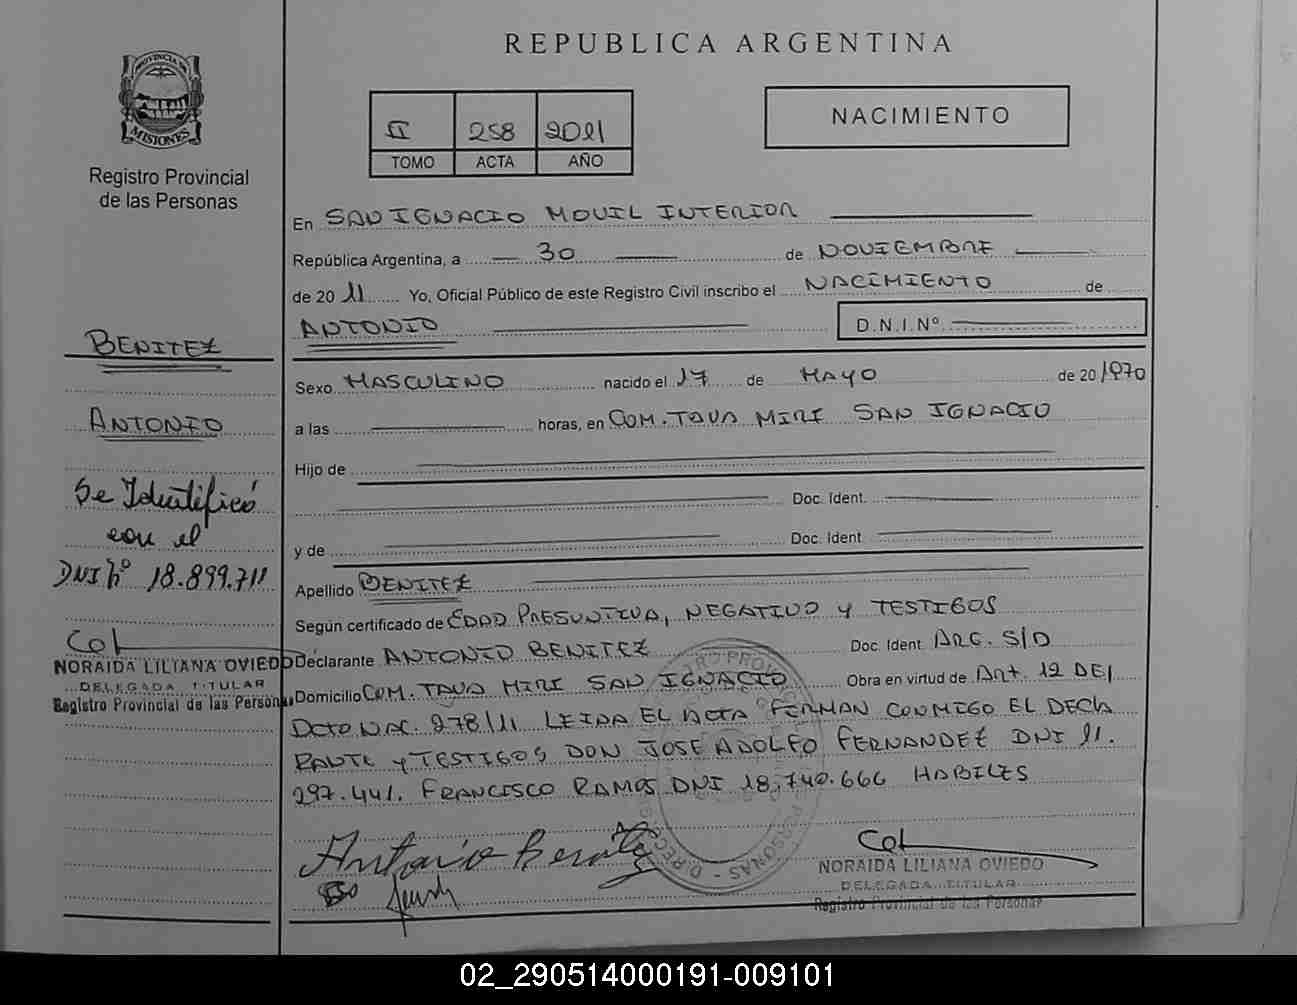 REPUBLICA ARGENTINA
PROVINCIA DE
MISIONES
Registro Provincial
de las Personas
II 258 2011
TOMO ACTA AÑO
NACIMIENTO
En SAN IGNACIO MOVIL INTERIOR
República Argentina, a 30 de NOVIEMBRE
de 20 11 Yo, Oficial Público de este Registro Civil inscribo el NACIMIENTO de
ANTONIO D.N.I.Nº
Sexo MASCULINO nacido el 17 de MAYO de 20 1970
a las horas, en COM. TAVA MIRI SAN IGNACIO
Hijo de
Doc. Ident.
y de Doc. Ident
Apellido BENITEZ
Según certificado de EDAD PRESUNTIVA, NEGATIVO Y TESTIGOS
Declarante ANTONIO BENITEZ Doc. Ident ARG. S/D
Domicilio COM. TAVA MIRI SAN IGNACIO Obra en virtud de Art. 12 DEL
DCTO NAC. 278/11 LEIDA EL ACTA FIRMAN CONMIGO EL DECLA
RANTE Y TESTIGOS DON JOSE ADOLFO FERNANDEZ DNI 11.
297.441. FRANCISCO RAMOS DNI 18.740.666 HABILES
Antonio Benitez
NORAIDA LILIANA OVIEDO
DELEGADA TITULAR
Registro Provincial de las Personas
BENITEZ
ANTONIO
Se Identificó
con el
DNI Nº 18.899.711
NORAIDA LILIANA OVIEDO
DELEGADA TITULAR
Registro Provincial de las Personas
02_290514000191-009101